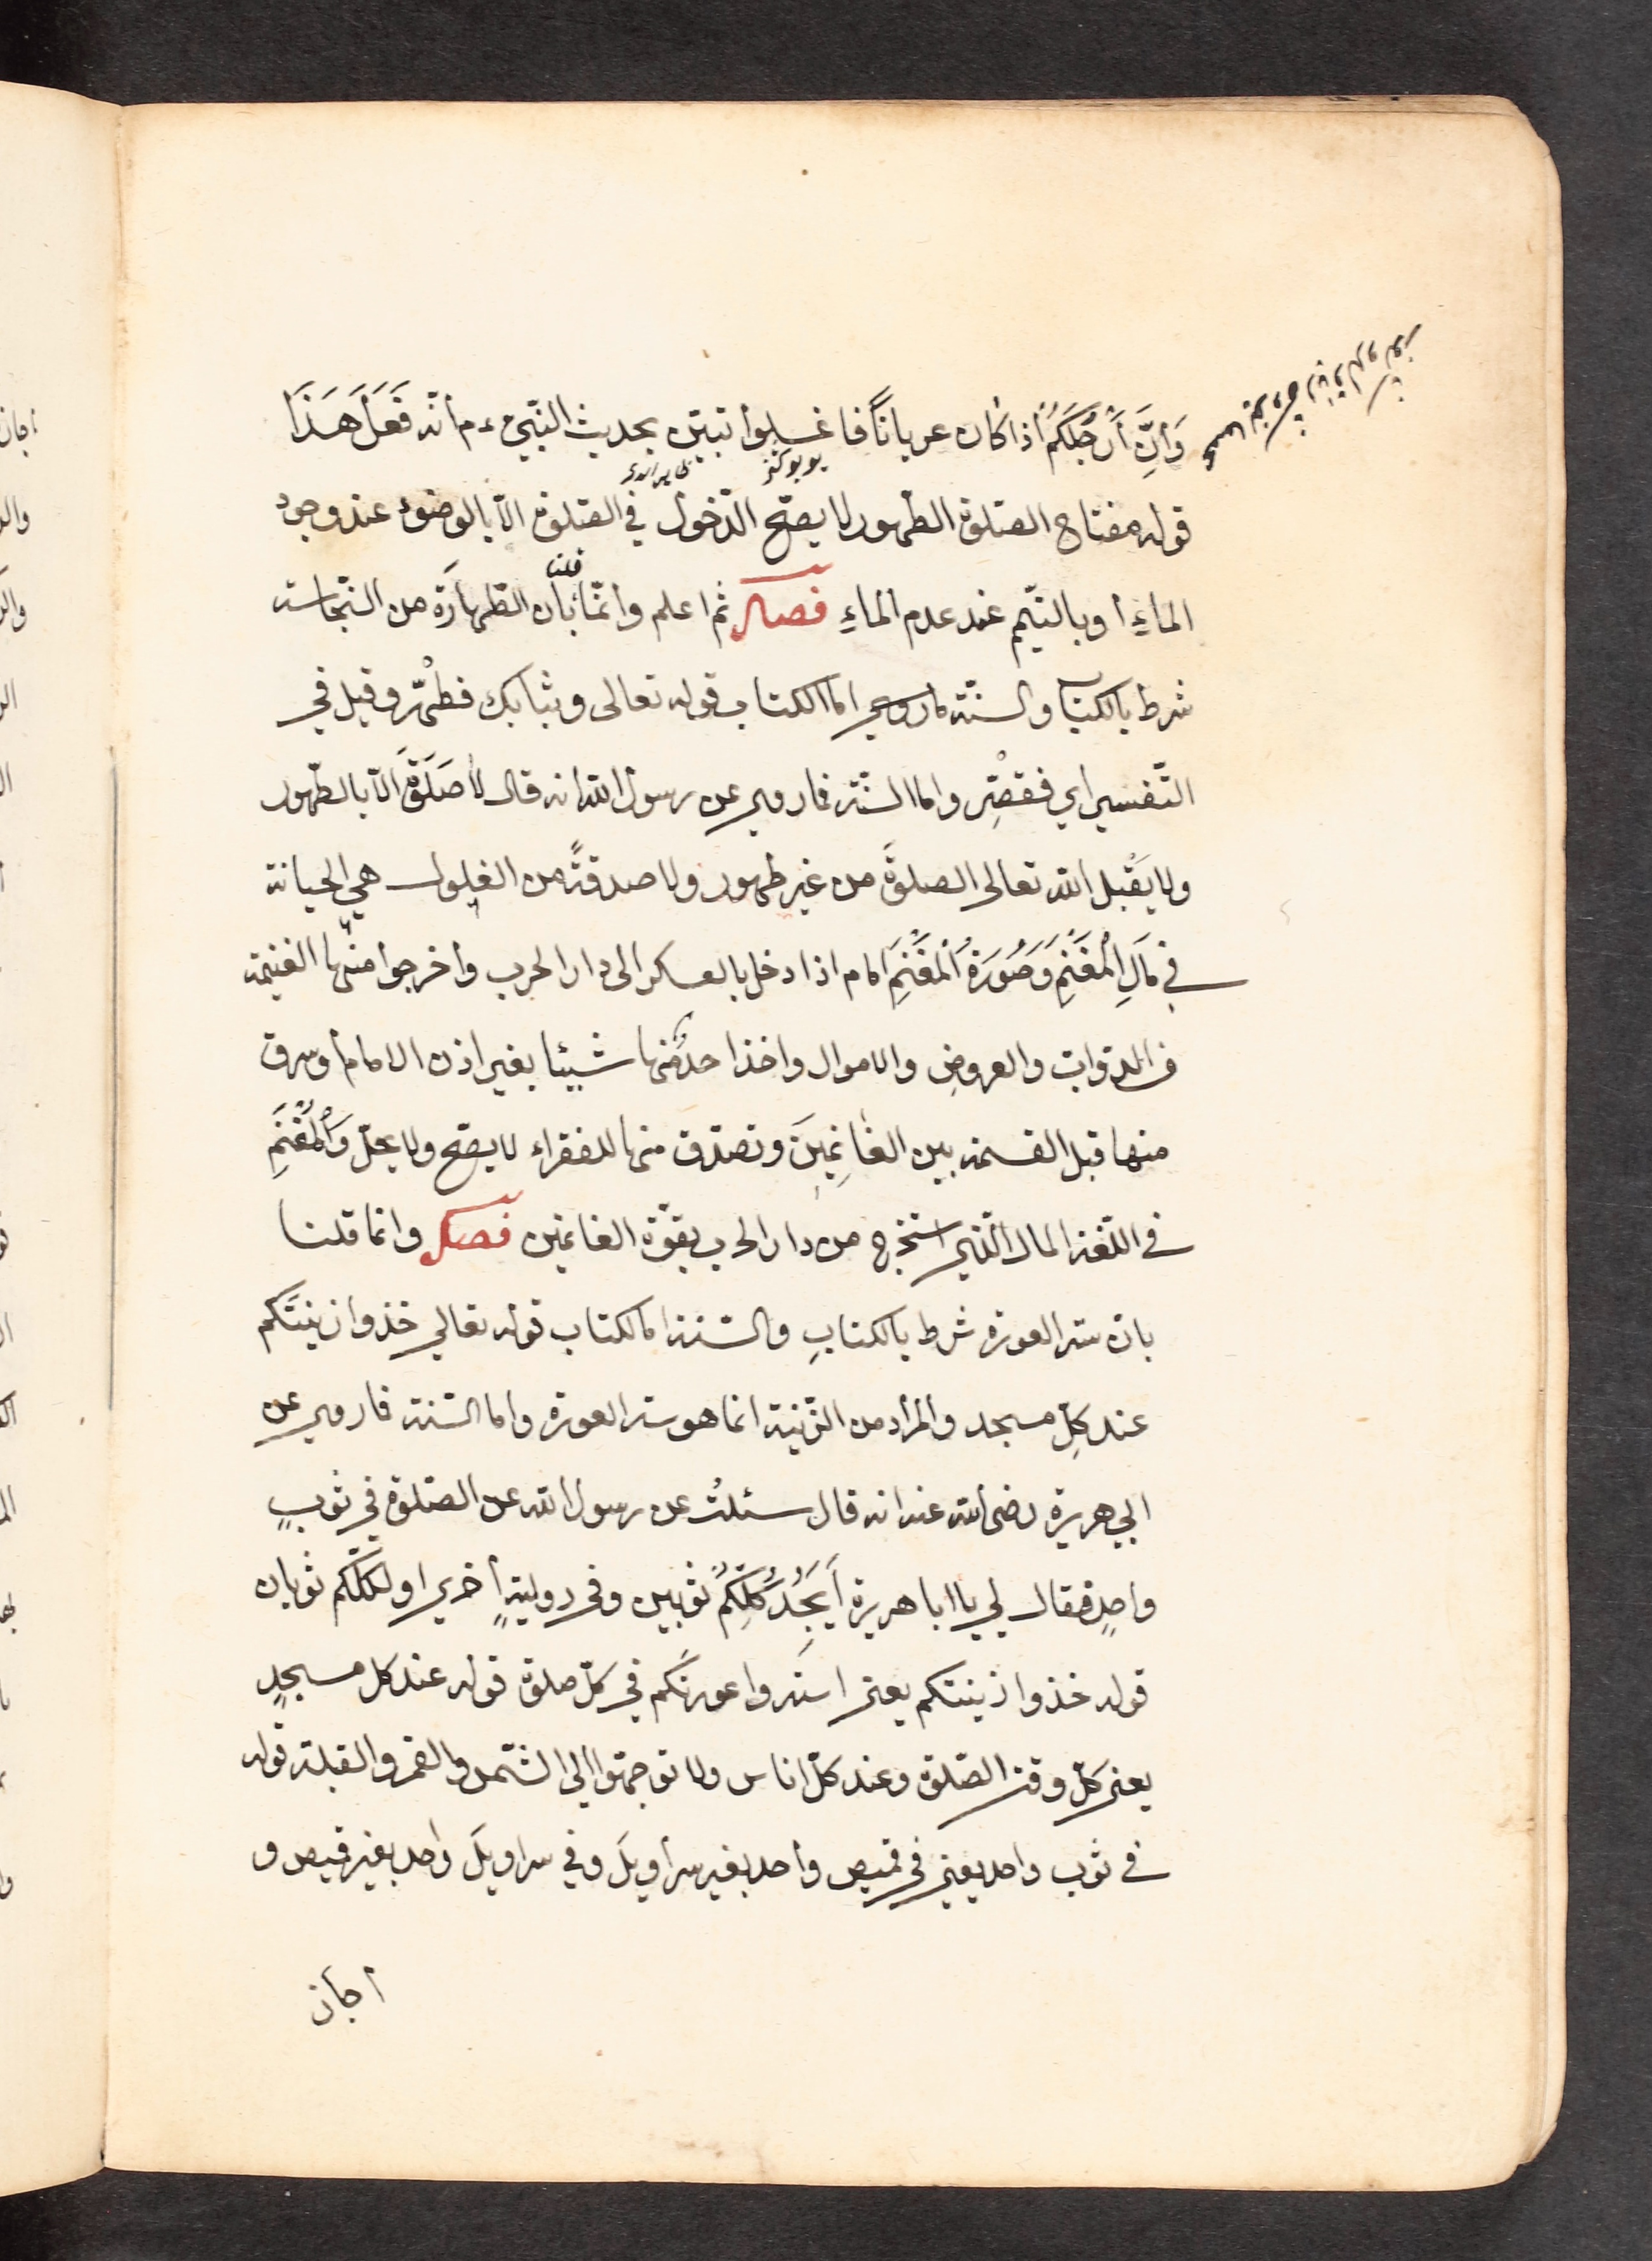 وَاِنَّ اَرْجُلَكُمْ اِذا كان عرياناً فاغسلوا تبيّن بحديث النّبيّ ءم أنّه فَعَلَ هَذَا
قوله مفتاح الصّلوة الطّهور لا يصحّ الدّخول في الصّلوة الّا بالوضوء عند وجود
الماءِ أو بالتيّمم عند عدم الماءِ فصل ثم اعلم وانّما قلنا بأن الطّهارَة من النّجاست
شرط بالكتاب والسنّة اما الكتاب قوله تعالى وثيابك فطهّرْ وقيل في
التّفسير اي فقصّرْ واما السّنّة فما روي عن رسول الله انه قال لا صَلَوةَ الّا بالطّهور
ولا يَقْبل الله تعالى الصلوةَ من غير طهور ولا صدقةً من الغلول هي الخيانة
في مَالِ الْمَغْنَمِ وَصُورَةُ الْمَغْنَمِ امام اذا دخل بالعسكر الى دار الحرب وأخرجوا منها الغنيمة
من الدّواب والعروضِ والاموال واخذ احدٌ منها شيئا بغير اذن الامام أو سرق
منها قبل القسمة بين الغانِمِينَ وتصدّق منها للفقراء لا يصحّ ولا يحلّ وَالْمَغْنَمِ
في اللّغة المال الّذي استخرج من دار الحرب بقوّة الغانمين فصل وانما قلنا
بانّ ستر العورة شرط بالكتابِ والسّنة اما الكتاب قوله تعالي خذوا زينتَكم
عند كلِّ مسجد والمراد من الزّينة انما هو ستر العورة واما السّنة فما روي عن
ابي هريرة رضى الله عنه انه قال سئلتُ عن رسول الله عن الصّلوة في ثوبٍ
واحدٍ فقال لي يا ابا هريرة أَيَجِدُ كُلُّكُمْ ثوبين وفي رواية أخرى او لكلّكم ثوبان
قوله خذوا زينتكم يعنى استروا عورتَكم في كلّ صلوة قوله عند كل مسجدٍ
يعنى كلّ وقت الصّلوة وعند كلّ اناس ولا توجّهوا الي الشّمس والقمر والقبلة قوله
في ثوب واحد يعنى في قميص واحد بغير سراويلَ وفي سراويلَ واحد بغير قميص و
اجاز